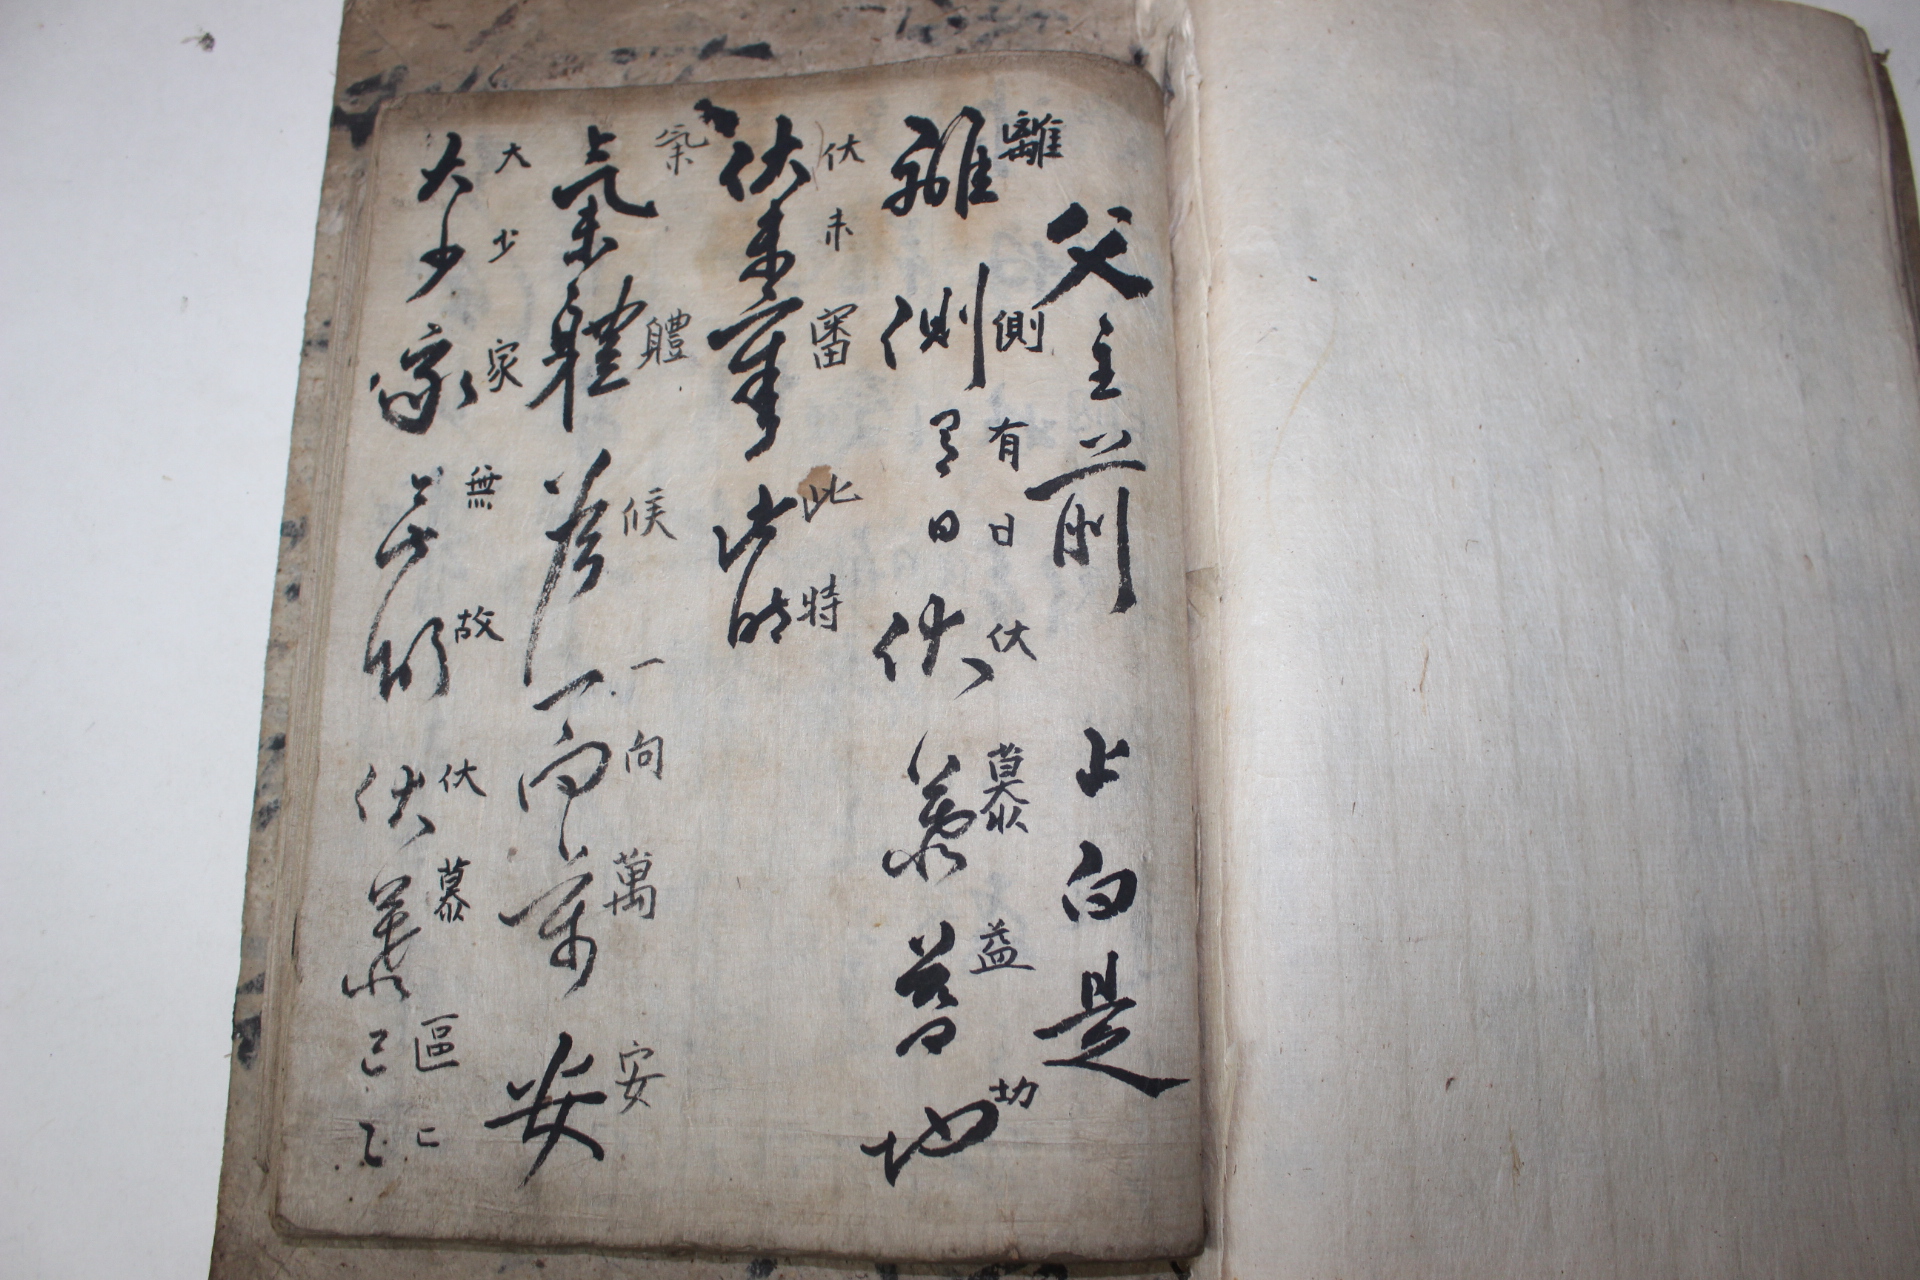 父主前 上白是
離側有日伏慕益切
離側有日伏慕益切
伏未審此時
伏未審此特
氣體候一向萬安
氣體候一向萬安
大少家無故伏慕區〻
大少家無故伏慕區〻